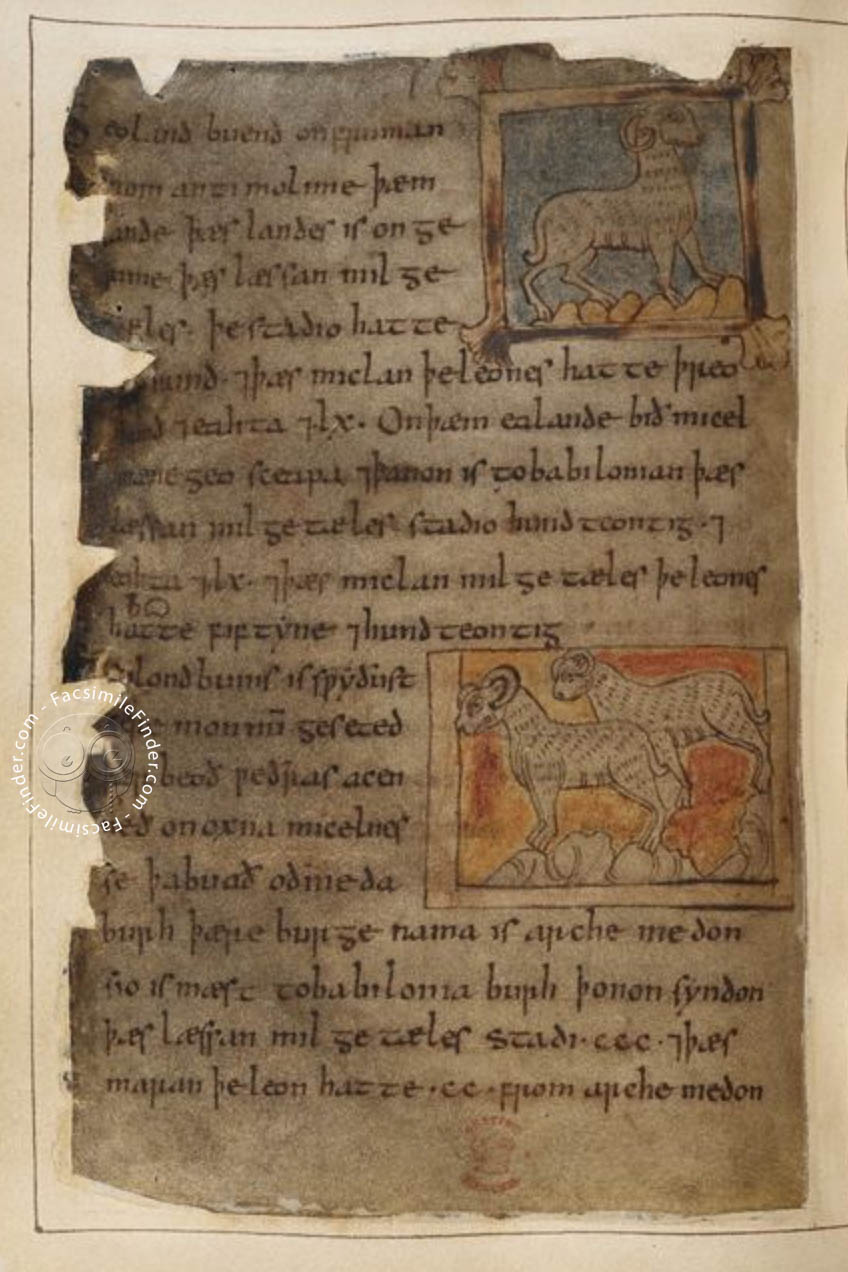 eoland buend on fruman
antimolime þæm
þæs landes is on ge
þæs læssan mil ge
þe stadio hatte
⁊ þæs miclan þe leones hatte þreo
⁊ eahta ⁊ lx. On þæm ealande bið micel
sceapa ⁊ þanon is to babiloniam þæs
læssan mil ge tæles stadio hund teontig ⁊
eahta ⁊ lx ⁊ þæs miclan mil ge tæles þe leones
hatte fiftyne ⁊ hund teontig
londbunis is sƿyðust
monnū geseted
beoð ƿeðras acen
on oxna micelnes
se þa buað oð meda
burh þære burge nama is arche medon
sio is mæst to babilonia burh þonon syndon
þæs læssan mil ge tæles stadi · ccc · ⁊ þæs
maran þe leon hatte · cc · from arche medon
FacsimileFinder.com - FacsimileFinder.com -